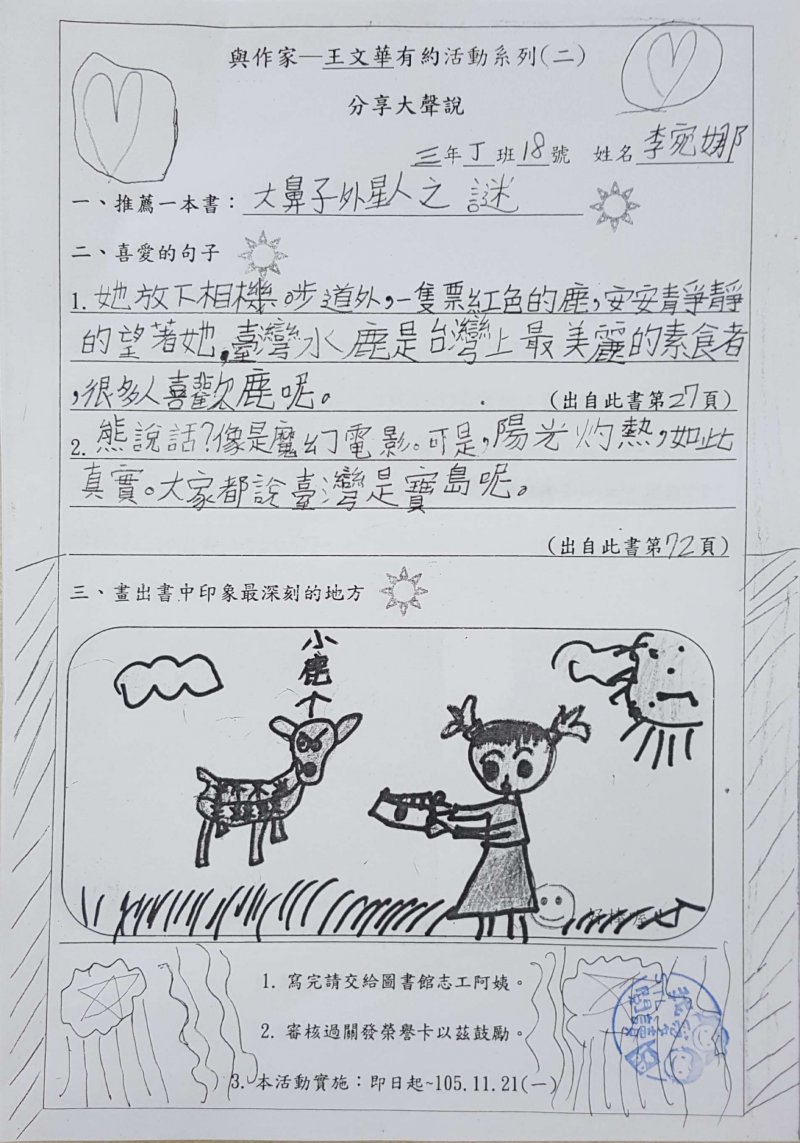 與作家—王文華有約活動系列(二)
分享大聲說
三年丁班18號 姓名李宛娜
一、推薦一本書：大鼻子外星人之謎
二、喜愛的句子
1.她放下相機。步道外,一隻票紅色的鹿,安安靜靜
的望著她,臺灣水鹿是台灣上最美麗的素食者
,很多人喜歡鹿呢。
(出自此書第27頁)
2.熊說話?像是魔幻電影。可是,陽光灼熱,如此
真實。大家都說臺灣是寶島呢。
(出自此書第72頁)
三、畫出書中印象最深刻的地方
小鹿
1. 寫完請交給圖書館志工阿姨。
2. 審核過關發榮譽卡以茲鼓勵。
3.本活動實施：即日起~105.11.21(一)
閱讀